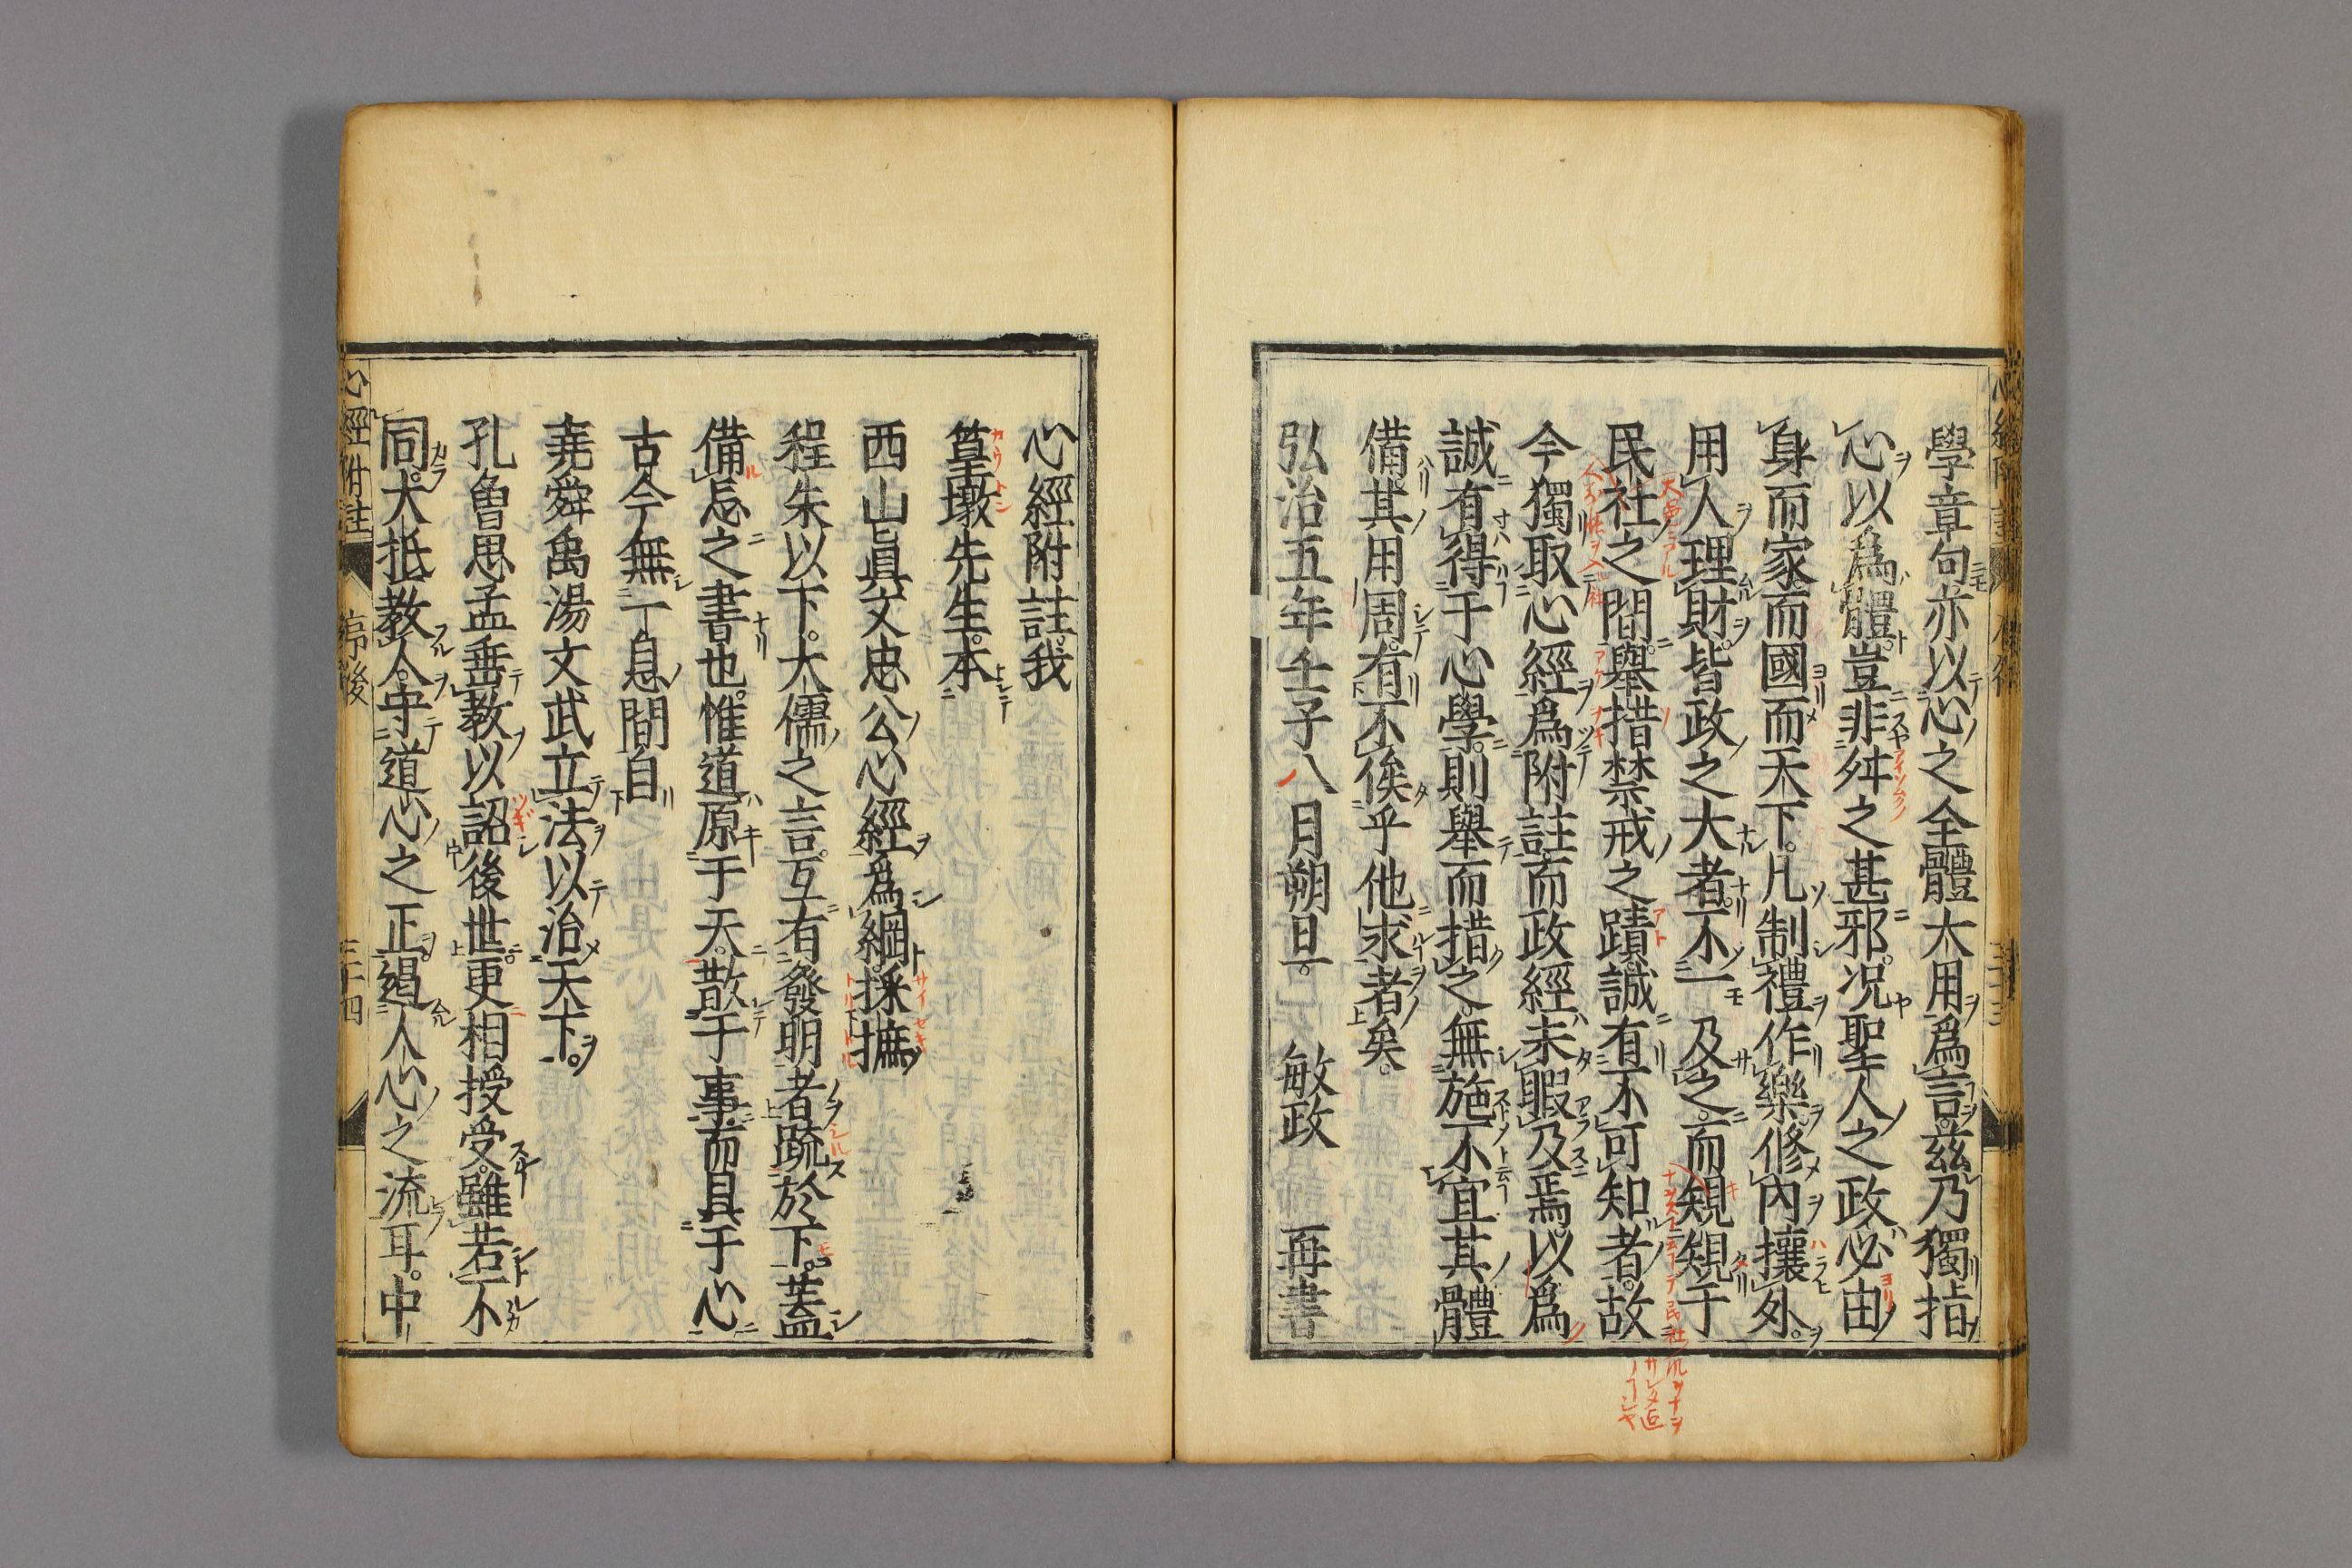 學章句亦以心之全體大用爲言茲乃獨指
心以爲體豈非舛之甚邪。况聖人之政必由
身而家而國而天下。凡制禮作樂。修內攘外。
用人理財。皆政之大者。不一及之。而規規于
民社之間。舉措禁戒之蹟。誠有不可知者。故
今獨取心經爲附註。而政經未暇及焉。以爲
誠有得于心學。則舉而措之。無施不宜。其體
備。其用周。有不俟乎他求者矣。
弘治五年壬子八月朔旦。 敏政 再書
心經附註。我
篁墩先生。本
西山眞文忠公心經爲綱。採摭
程朱以下。大儒之言。互有發明者。疏於下。蓋
備忘之書也。惟道原于天。散于事。而具于心
古今無一息間自
堯舜禹湯文武立法以治天下。
孔曾思孟垂教以詔後世。更相授受。雖若不
同。大抵教人守道心之正。遏人心之流耳。中
心經附註 序後 三十四